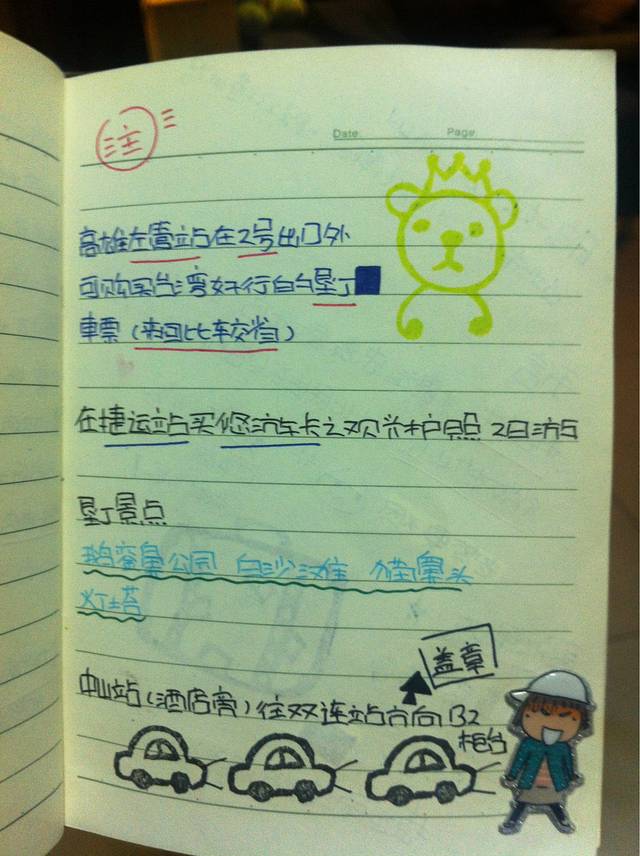 注
Date. Page.
高雄左营站在2号出口外
可购买台湾好行的垦丁
車票(来回比车交省)
在捷运站买悠游车卡之观光护照 2日游
垦丁景点
鹅銮鼻公园 白沙滩 猫鼻头
灯塔
盖章
中山站(酒店旁)往双连站方向B2
柜台